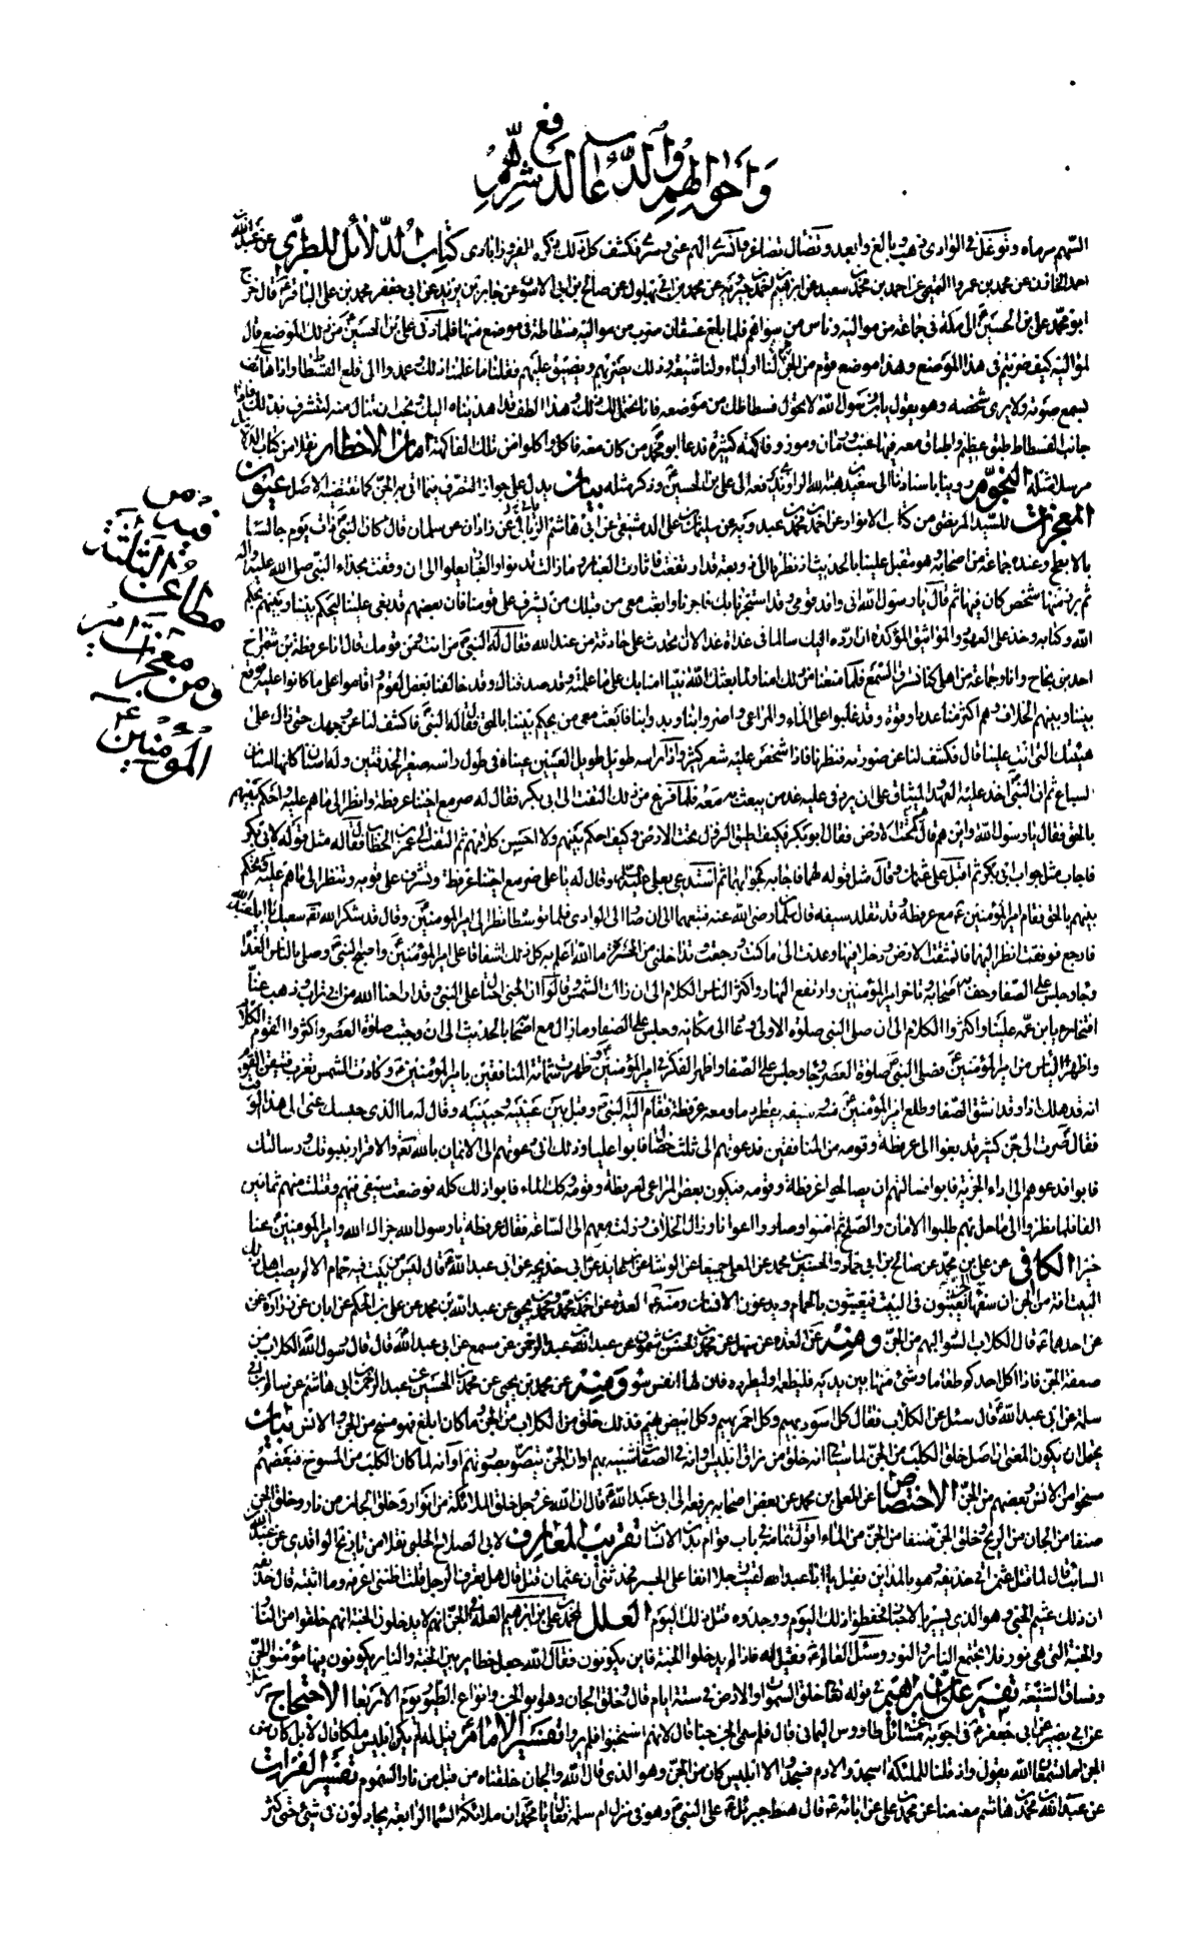 وأحوالهم والدعاء لدفع شرهم
كتاب الدلائل للطبري عن عبد الله
احمد الخازن عن محمد بن عمر التميمي عن احمد بن محمد بن سعيد عن ابراهيم بن احمد بن جبرويه عن محمد بن ابي بهلول عن صالح بن ابي الاسود عن جابر بن يزيد عن ابي جعفر محمد بن علي الباقر ع قال خرج
ابو محمد علي بن الحسين ع الى مكة في جماعة من مواليه وناس من سواهم فلما بلغ عسفان ضرب مواليه فسطاطه في موضع منها فلما دنى علي بن الحسين ع من ذلك الموضع قال
لمواليه كيف ضربتم في هذا الموضع وهذا موضع قوم من الجن هم لنا اولياء ولنا شيعة وذلك يضر بهم ويضيق عليهم فقلنا ما علمنا ذلك وعمدوا الى قلع الفسطاط واذا هاتف
يسمع صوته ولا يرى شخصه وهو يقول يابن رسول الله لا تحول فسطاطك من موضعه فانا نحتمل لك ذلك وهذا الطف قد اهديناه اليك ونحب ان تنال منه لنتشرف بذلك فاذا
جانب الفسطاط طبق عظيم واطباق معه فيها عنب ورمان وموز وفاكهة كثيرة فدعا ابو محمد من كان معه فاكل واكلوا من تلك الفاكهة امان الاخطار نقلا من كتاب الدلائل
مرسلا مثله النجوم روينا باسنادنا الى سعيد بن هبة الله الراوندي يرفعه الى علي بن الحسين ع وذكر مثله بيان يدل على جواز التصرف فيما اتى به الجن كما يقتضيه الاصل عيون
المعجزات للسيد المرتضى من كتاب الانوار عن احمد بن محمد بن عبدويه عن سليمان بن علي الدمشقي عن ابي هاشم الرماني عن زاذان عن سلمان قال كان النبي ذات يوم جالسا
بالابطح وعنده جماعة من اصحابه وهو مقبل علينا بالحديث اذ نظر الى زوبعة قد ارتفعت فاثارت الغبار وما زالت تدنو والغبار يعلو الى ان وقفت بحذاء النبي صلى الله عليه واله
ثم برز منها شخص كان فيها ثم قال يا رسول الله اني وافد قومي وقد استجرنا بك فاجرنا وابعث معي من قبلك من يشرف على قومنا فان بعضهم قد بغى علينا ليحكم بيننا وبينهم بحكم
الله وكتابه وخذ على العهود والمواثيق المؤكدة ان ارده اليك سالما في غداة غد الا ان تحدث علي حادثة من عند الله فقال له النبي ص من انت ومن قومك قال انا عرفطة بن شمراخ
احد بني نجاح وانا وجماعة من اهلي كنا نسترق السمع فلما منعنا من ذلك امنا ولما بعثك الله نبيا امنا بك على ما علمته وقد صدقناك وقد خالفنا بعض القوم واقاموا على ما كانوا عليه فوقع
بيننا وبينهم الخلاف وهم اكثر منا عددا وقوة وقد غلبوا على الماء والمراعي واضروا بنا وبدوابنا فابعث معي من يحكم بيننا بالحق فقال له النبي ص فاكشف لنا عن وجهك حتى نراك على
هيئتك التي انت عليها قال فكشف لنا عن صورته فنظرنا فاذا شخص عليه شعر كثير واذا راسه طويل طويل العينين عيناه في طول راسه صغير الحدقتين وله اسنان كانها اسنان
السباع ثم ان النبي ص اخذ عليه العهد والميثاق على ان يرد في عليه غد من يبعث به معه فلما فرغ من ذلك التفت الى ابي بكر فقال له صر مع اخينا عرفطة وانظر الى ما هم عليه واحكم بينهم
بالحق فقال يا رسول الله واين هم قال هم تحت الارض فقال ابو بكر فكيف اطيق النزول تحت الارض وكيف احكم بينهم ولا احسن كلامهم ثم التفت الى عمر بن الخطاب فقال له مثل قوله لابي بكر
فاجاب مثل جواب ابي بكر ثم اقبل على عثمان وقال مثل قوله لهما فاجابه كجوابهما ثم استدعى بعلي عليه السلام وقال له يا علي صر مع اخينا عرفطة وتشرف على قومه وتنظر الى ما هم عليه وتحكم
بينهم بالحق فقام امير المؤمنين ع مع عرفطة وقد تقلد سيفه قال سلمان رضي الله عنه فتبعتهما الى ان صارا الى الوادي فلما توسطا نظر الي امير المؤمنين ع وقال قد شكر الله تع سعيك يا ابا عبد الله
فارجع فوقفت انظر اليهما فانشقت الارض ودخلا فيها وعدت الى ما كنت ورجعت وتداخلني من الحسرة ما الله اعلم به كل ذلك اشفاقا على امير المؤمنين ع واصبح النبي ص وصلى بالناس الغداة
وجاء وجلس على الصفا وحف به اصحابه وتاخر امير المؤمنين ع وارتفع النهار واكثر الناس الكلام الى ان زالت الشمس وقالوا ان الجني احتال على النبي ص وقد اراحنا الله من ابي تراب وذهب عنا
افتخاره بابن عمه علينا واكثروا الكلام الى ان صلى النبي ص صلوة الاولى وعاد الى مكانه وجلس على الصفا وما زال مع اصحابه بالحديث الى ان وجبت صلوة العصر واكثروا القوم الكلام
واظهروا الياس من امير المؤمنين ع فصلى النبي ص صلوة العصر وجاء وجلس على الصفا واظهر الفكر في امير المؤمنين ع وظهرت شماتة المنافقين بامير المؤمنين ع وكادت الشمس تغرب فتيقن القوم
انه قد هلك اذا وقد انشق الصفا وطلع امير المؤمنين ع منه وسيفه يقطر دما ومعه عرفطة فقام اليه النبي ص وقبل بين عينيه وجبينيه وقال له ما الذي حبسك عني الى هذا الوقت
فقال ع صرت الى جن كثير قد بغوا على عرفطة وقومه من المنافقين فدعوتهم الى ثلث خصال فابوا علي وذلك اني دعوتهم الى الايمان بالله تعه والاقرار بنبوتك ورسالتك
فابوا فدعوتهم الى اداء الجزية فابوا فسالتهم ان يصالحوا عرفطة وقومه فيكون بعض المراعي لعرفطة وقومه وكذلك الماء فابوا ذلك كله فوضعت سيفي فيهم وقتلت منهم ثمانين
الفا فلما نظروا الى ما حل بهم طلبوا الامان والصلح ثم امنوا وصاروا اخوانا وزال الخلاف وما زلت معهم الى الساعة فقال عرفطة يا رسول الله جزاك الله وامير المؤمنين ع عنا
خيرا الكافي عن علي بن محمد عن صالح بن ابي حماد والحسين بن محمد عن المعلى جميعا عن الوشاء عن احمد بن عائذ عن ابي خديجة عن ابي عبد الله ع قال ليس من بيت فيه حمام الا لم يصب اهل ذلك
البيت افة من الجن ان سفهاء الجن يعبثون في البيت فيعبثون بالحمام ويدعون الانسان ومنه عن العدة عن احمد بن محمد ومحمد بن يحيى عن عبد الله بن محمد عن علي بن الحكم عن ابان عن زرارة عن
عن احدهما ع قال الكلاب السود البهيم من الجن ومنه عن العدة عن سهل عن محمد بن الحسن بن شمون عن عبد الله بن عبد الرحمن عن مسمع عن ابي عبد الله ع قال قال رسول الله ص الكلاب من
ضعفة الجن فاذا اكل احدكم طعاما وشئ منها بين يديه فليطعمه او ليطرده فان لها انفس سوء ومنه عن محمد بن يحيى عن محمد بن الحسين عن عبد الرحمن بن ابي هاشم عن سالم بن ابي
سلمة عن ابي عبد الله ع قال سئل عن الكلاب فقال كل اسود بهيم وكل احمر بهيم وكل ابيض بهيم فذلك خلق من الكلاب من الجن وما كان ابلق فهو مسخ من الجن والانس بيان
يحتمل ان يكون المعنى ان اصل خلق الكلب من الجن لما سياتي انه خلق من بزاق ابليس او انه في الصفات شبيه بهم او ان الجن يتصور بصورتهم او انه لما كان الكلب من المسوخ فبعضهم
مسخوا من الانس وبعضهم من الجن الاختصاص عن المعلى بن محمد عن بعض اصحابه يرفعه الى ابي عبد الله ع قال ان الله عز وجل خلق الملائكة من انوار وخلق الجان من نار وخلق الجن
صنفا من الجان من الريح وخلق الجن صنفا من الجن من الماء اقول تمامه في باب قوام بدن الانسان تقريب المعارف لابي الصلاح الحلبي نقلا من تاريخ الواقدي عن عبد الله بن
السائب قال لما قتل عثمان اتى حذيفة وهو بالمدائن فقيل يا ابا عبد الله لقيت رجلا انفا على الجسر فحدثني ان عثمان قتل قال هل تعرف الرجل قلت اظنني اعرفه وما اثبته قال حذيفة
ان ذلك عيثم الجني وهو الذي يسير بالاخبار فحفظوا ذلك اليوم ووجدوه قتل ذلك اليوم العلل لمحمد بن علي بن ابراهيم العلة في الجن انهم لا يدخلون الجنة انهم خلقوا من النار
والجنة التي هي نور فلا تجتمع النار والنور وسئل العالم ع فقيل له فاذا لم يدخلوا الجنة فاين يكونون فقال ان الله جعل حظاير بين الجنة والنار يكونون فيها مؤمنوا الجن
وفساق الشيعة تفسير علي بن ابراهيم في قوله تعا خلق السموات والارض في ستة ايام قال وخلق الجان وهو ابو الجن وانواع الطيور يوم الاربعاء الاحتجاج
عن ابي بصير عن ابي جعفر ع في اجوبته عن مسائل طاووس اليماني قال فلم سمي الجن جنا قال لانهم استجنوا فلم يروا تفسير الامام ع قيل له لم يكن ابليس ملكا قال لا بل كان من
الجن اما تسمعان الله يقول واذ قلنا للملئكة اسجدوا لادم فسجدوا الا ابليس كان من الجن وهو الذي قال الله والجان خلقناه من قبل من نار السموم تفسير الفرات
عن عبد الله بن محمد بن هاشم معنعنا عن محمد بن علي عن ابائه ع قال هبط جبرئيل ع على النبي ص وهو في منزل ام سلمة فقال يا محمد ان ملائكة السماء الرابعة يجادلون في شئ حتى كثر
فيه من
مطاعن الثلثة
ومن معجزات امير
المؤمنين ع